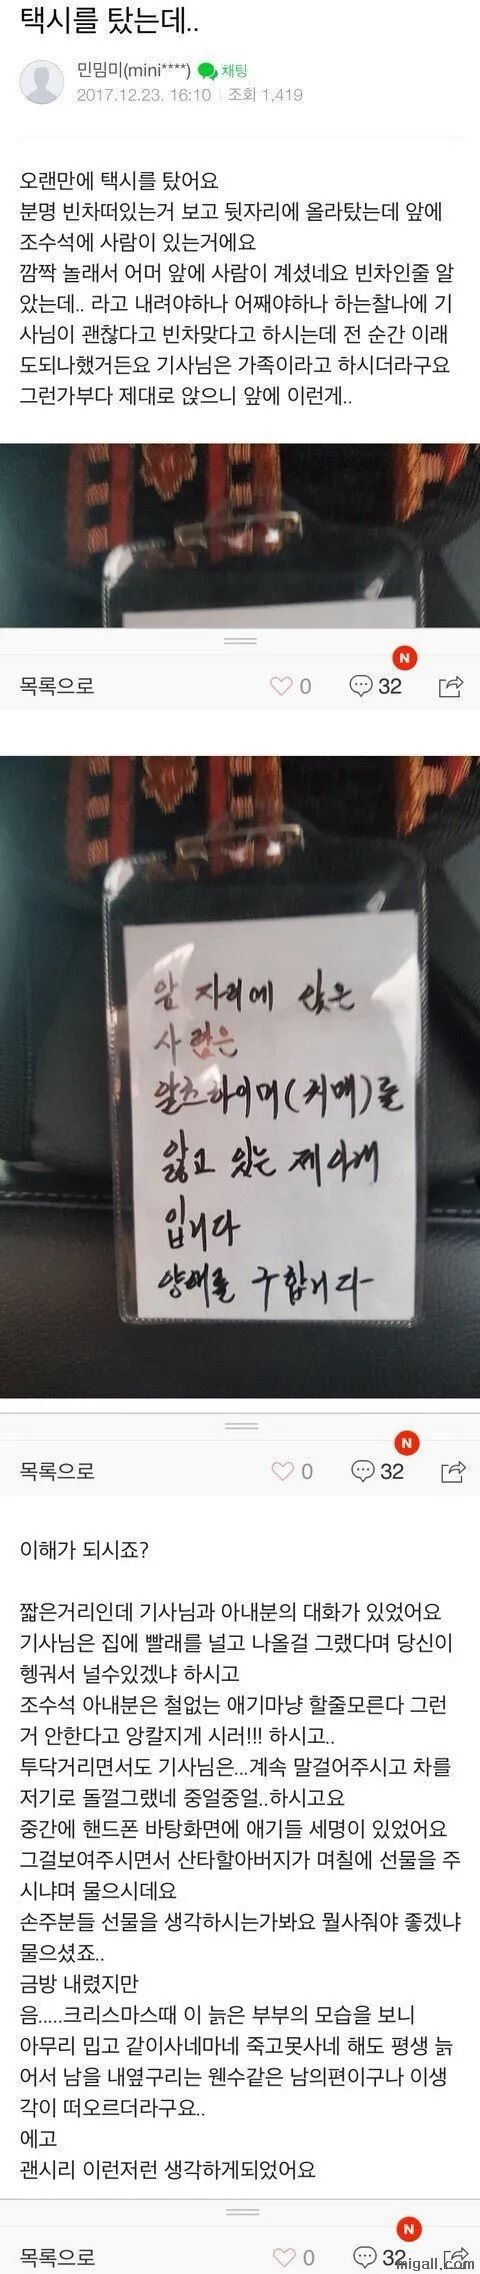 택시를 탔는데..
민밈미(mini****) 채팅
2017.12.23. 16:10 조회 1,419
오랜만에 택시를 탔어요
분명 빈차떠있는거 보고 뒷자리에 올라탔는데 앞에
조수석에 사람이 있는거에요
깜짝 놀래서 어머 앞에 사람이 계셨네요 빈차인줄 알
았는데.. 라고 내려야하나 어째야하나 하는찰나에 기
사님이 괜찮다고 빈차맞다고 하시는데 전 순간 이래
도되나했거든요 기사님은 가족이라고 하시더라구요
그런가부다 제대로 앉으니 앞에 이런게..
N
목록으로 0 32
앞 자리에 앉은
사람은
알츠하이머(치매)를
앓고 있는 제 아내
입니다
양해를 구합니다
N
목록으로 0 32
이해가 되시죠?
짧은거리인데 기사님과 아내분의 대화가 있었어요
기사님은 집에 빨래를 널고 나올걸 그랬다며 당신이
헹궈서 널수있겠냐 하시고
조수석 아내분은 철없는 애기마냥 할줄모른다 그런
거 안한다고 앙칼지게 시러!!! 하시고..
투닥거리면서도 기사님은...계속 말걸어주시고 차를
저기로 돌껄그랬네 중얼중얼..하시고요
중간에 핸드폰 바탕화면에 애기들 세명이 있었어요
그걸보여주시면서 산타할아버지가 며칠에 선물을 주
시냐며 물으시데요
손주분들 선물을 생각하시는가봐요 뭘사줘야 좋겠냐
물으셨죠..
금방 내렸지만
음.....크리스마스때 이 늙은 부부의 모습을 보니
아무리 밉고 같이사네마네 죽고못사네 해도 평생 늙
어서 남을 내옆구리는 웬수같은 남의편이구나 이생
각이 떠오르더라구요..
에고
괜시리 이런저런 생각하게되었어요
N
목록으로 0 32
migall.com